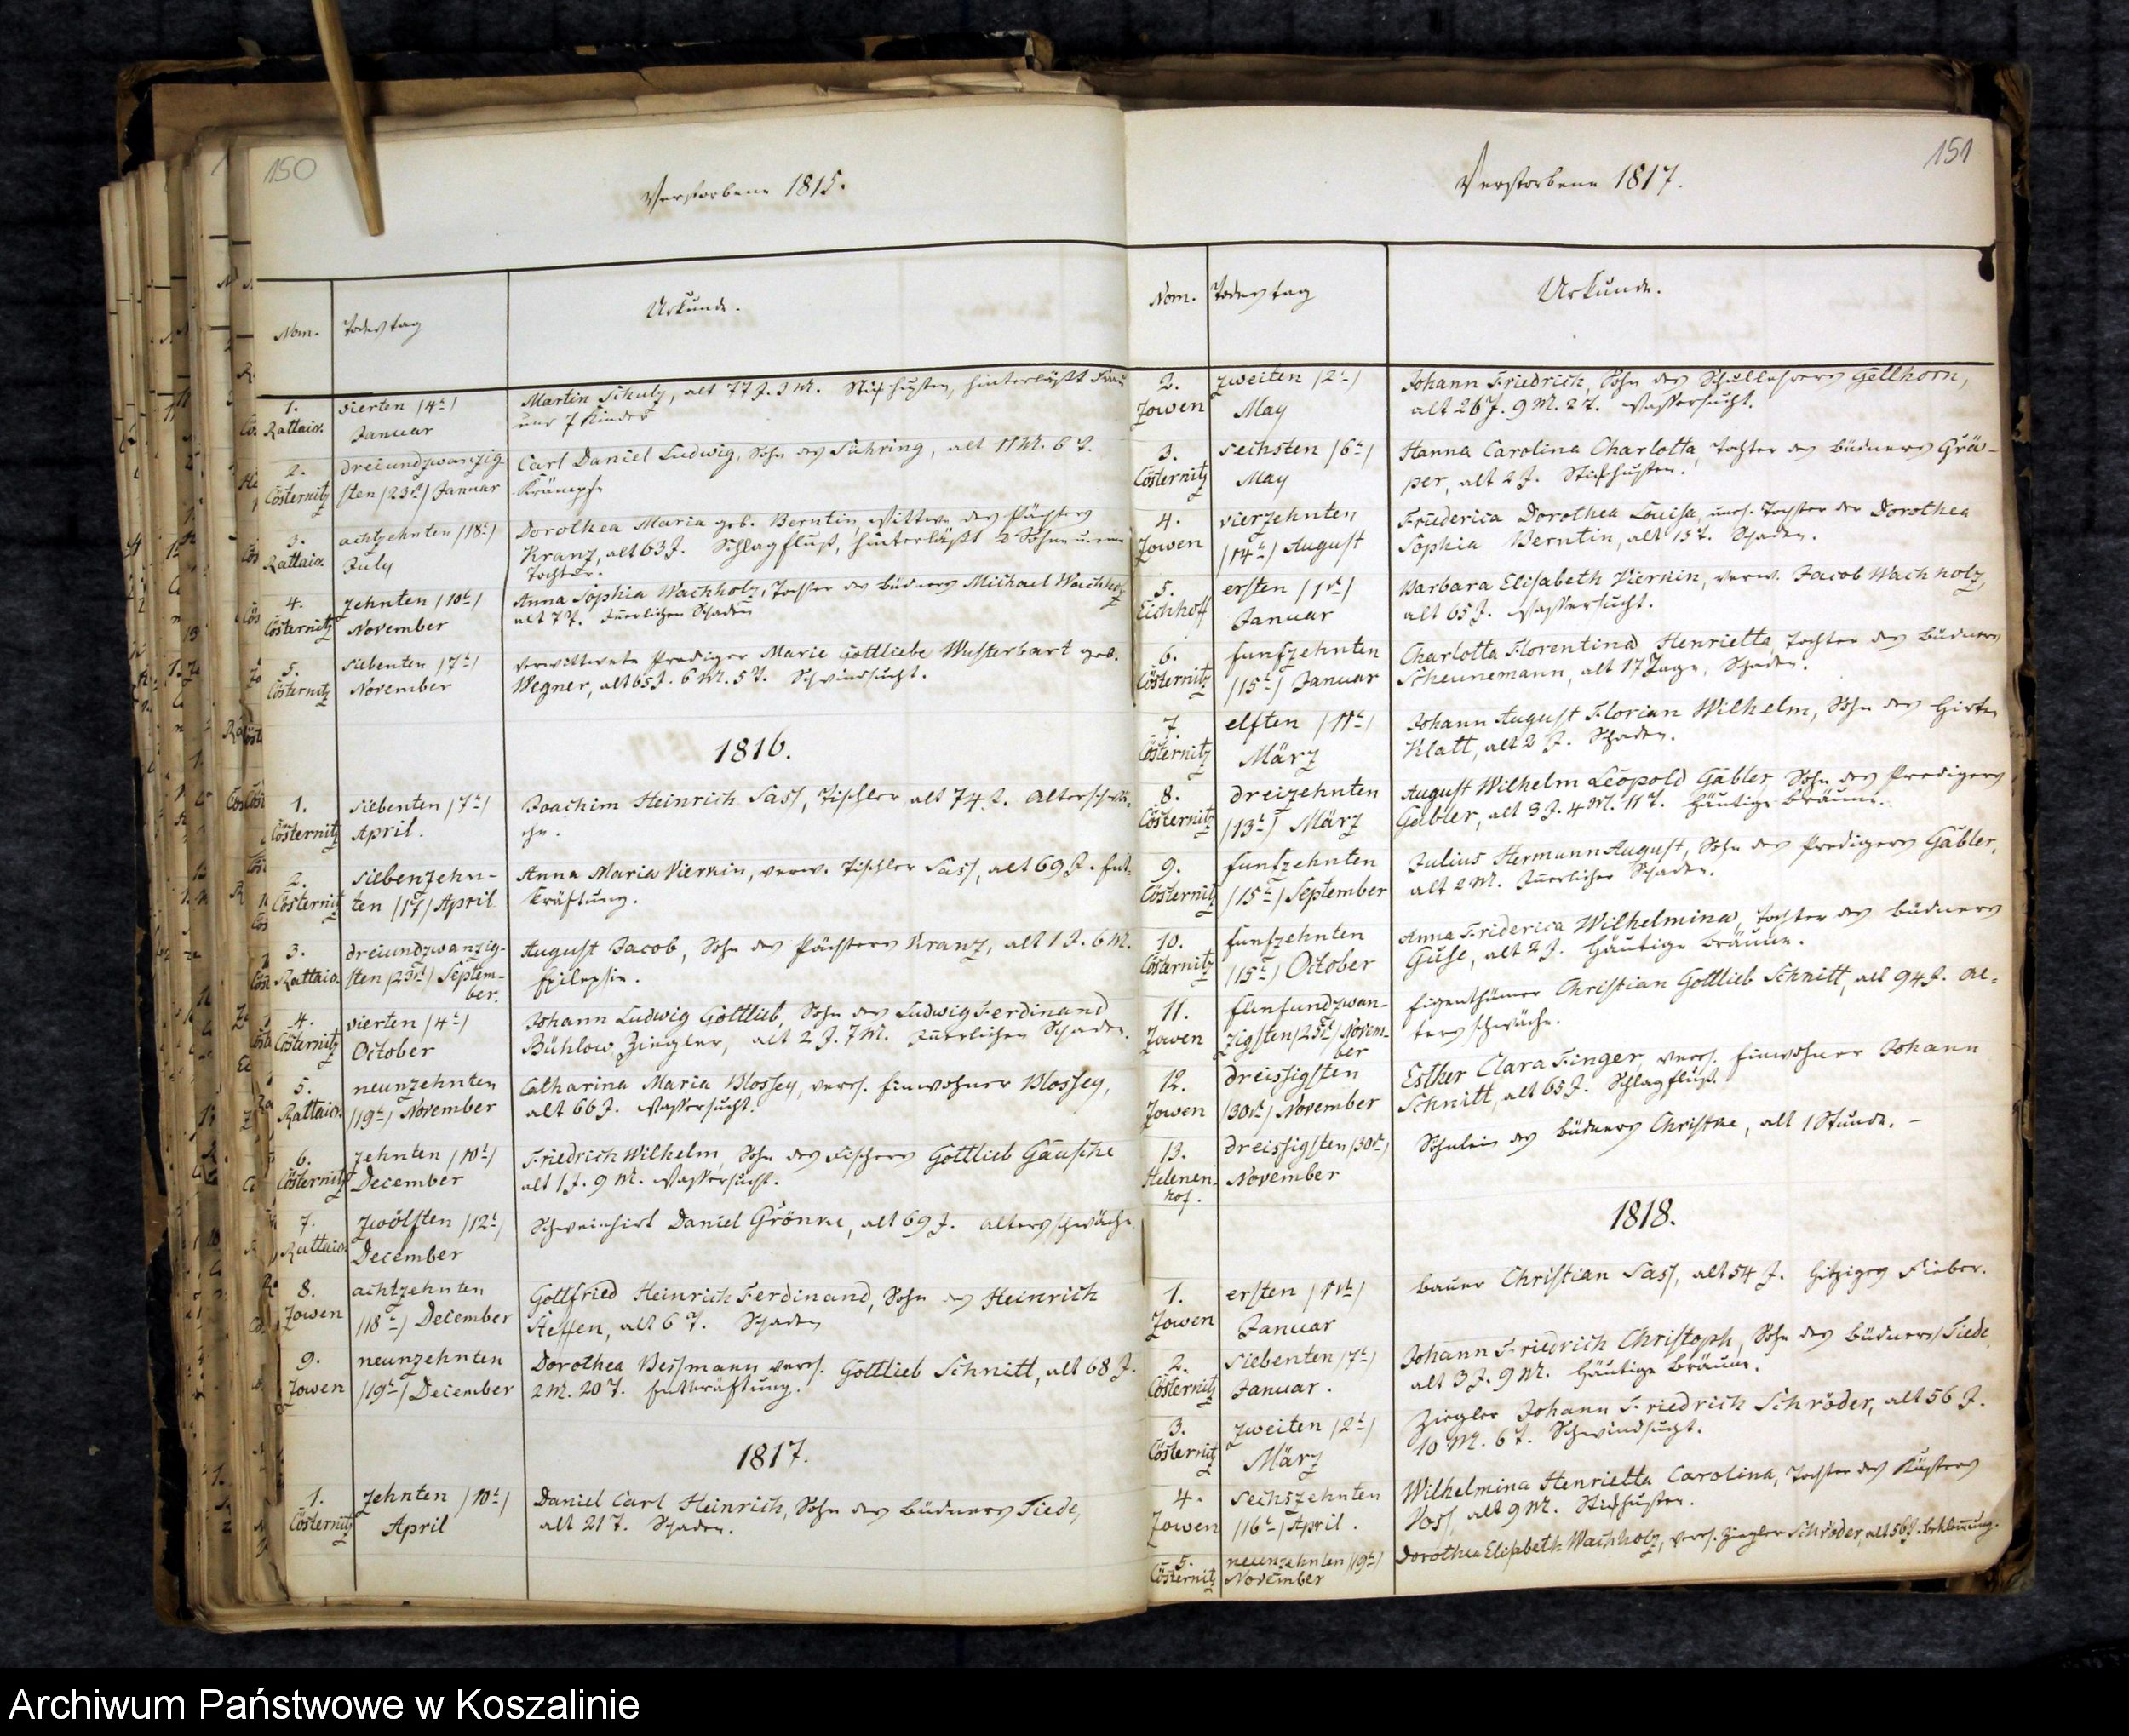 150
Verstorbene 1815.
Nom.
Todestag
Urkunde.
1.
Rattaic.
vierten /4t/
Januar
Martin Schulz, alt 77 J. 3 M. Stickhusten, hinterläßt Frau
und 7 Kinder
2.
Cösternitz
dreiundzwanzig-
sten /23t/ Januar
Carl Daniel Ludwig, Sohn des Sühring, alt 11 M. 6 T.
Krämpfe
3.
Rattaic.
achtzehnten /18t/
July
Dorothea Maria geb. Berntin, Wittwe des Pächters
Kranz, alt 63 J. Schlagfluß, hinterläßt 2 Söhne u. eine
Tochter.
4.
Cösternitz
zehnten /10t/
November
Anna Sophia Wachholz, Tochter des Büdners Michael Wachholz
alt 7 T. Innerlichen Schaden
5.
Cösternitz
siebenten /7t/
November
verwittwete Prediger Marie Gottliebe Wusterbart geb.
Wegner, alt 65 J. 6 M. 5 T. Schwindsucht.
1816.
1.
Cösternitz
siebenten /7t/
April.
Joachim Heinrich Sass, Tischler alt 74 J. Altersschwä-
che.
2.
Cösternitz
siebenzehn-
ten /17/ April
Anna Maria Viernin, verw. Tischler Sass, alt 69 J. Ent-
kräftung.
3.
Rattaic.
dreiundzwanzig-
sten /23t/ Septem-
ber.
August Jacob, Sohn des Pächters Kranz, alt 1 J. 6 M.
Epilepsie.
4.
Cösternitz
vierten /4t/
October
Johann Ludwig Gottlieb, Sohn des Ludwig Ferdinand
Bühlow Ziegler, alt 2 J. 7 M. Innerlichen Schaden.
5.
Rattaic.
neunzehnten
/19t/ November
Catharina Maria Blossey, verh. Einwohner Blossey,
alt 66 J. Wassersucht.
6.
Cösternitz
zehnten /10t/
December
Friedrich Wilhelm, Sohn des Fischers Gottlieb Gäuschke
alt 1 J. 9 M. Wassersucht.
7.
Rattaic.
zwölften /12t/
December
Schweinhirt Daniel Grönke, alt 69 J. Altersschwäche
8.
Jowen
achtzehnten
/18t/ December
Gottfried Heinrich Ferdinand, Sohn des Heinrich
Steffen, alt 6 T. Schaden
9.
Jowen
neunzehnten
/19t/ December
Dorothea Bessmann verh. Gottlieb Schnitt, alt 68 J.
2 M. 20 T. Entkräftung.
1817.
1.
Cösternitz
zehnten /10t/
April
Daniel Carl Heinrich, Sohn des Büdners Tiede,
alt 21 T. Schaden.
151
Verstorbene 1817.
Nom.
Todestag
Urkunde.
2.
Jowen
zweiten /2t/
May
Johann Friedrich, Sohn des Schullehrers Gellhorn,
alt 26 J. 9 M. 2 T. Wassersucht.
3.
Cösternitz
sechsten /6t/
May
Hanna Carolina Charlotta, Tochter des Büdners Grä-
per, alt 2 J. Stickhusten.
4.
Jowen
vierzehnten
/14t/ August
Friederica Dorothea Louisa, unehl. Tochter der Dorothea
Sophia Berntin, alt 15 T. Schaden.
5.
Eichhoff
ersten /1t/
Januar
Barbara Elisabeth Viernin, verw. Jacob Wachholz,
alt 65 J. Wassersucht.
6.
Cösternitz
funfzehnten
/15t/ Januar
Charlotta Florentina Henrietta, Tochter des Büdners
Scheunemann, alt 17 Tage, Schaden.
7.
Cösternitz
elften /11t/
März
Johann August Florian Wilhelm, Sohn des Hirten
Klatt, alt 2 J. Schaden.
8.
Cösternitz
dreizehnten
/13t/ März
August Wilhelm Leopold Gäbler, Sohn des Predigers
Gäbler, alt 3 J. 4 M. 11 T. Häutige Bräune.
9.
Cösternitz
funfzehnten
/15t/ September
Julius Hermann August, Sohn des Predigers Gäbler,
alt 2 M. Innerlicher Schaden.
10.
Cösternitz
funfzehnten
/15t/ October
Anna Friderica Wilhelmina, Tochter des Büdners
Guse, alt 2 J. Häutige Bräune.
11.
Jowen
fünfundzwan-
zigsten /25t/ Novem-
ber
Eigenthümer Christian Gottlieb Schnitt, alt 94 J. Al-
tersschwäche.
12.
Jowen
dreissigsten
/30t/ November
Esther Clara Finger, verh. Einwohner Johann
Schnitt, alt 65 J. Schlagfluß.
13.
Helenen-
hof.
dreissigsten /30t/
November
Söhnlein des Büdners Christke, alt 1 Stunde. –
1818.
1.
Jowen
ersten /1t/
Januar
Bauer Christian Sass, alt 54 J. Hitziges Fieber.
2.
Cösternitz
siebenten /7t/
Januar.
Johann Friedrich Christoph, Sohn des Büdners Tiede
alt 3 J. 9 M. Häutige Bräune.
3.
Cösternitz
zweiten /2t/
März
Ziegler Johann Friedrich Schröder, alt 56 J.
10 M. 6 T. Schwindsucht.
4.
Jowen
sechszehnten
/16t/ April.
Wilhelmina Henrietta Carolina, Tochter des Küsters
Voss, alt 9 M. Stickhusten.
5.
Cösternitz
neunzehnten /19t/
November
Dorothea Elisabeth Wachholz, verh. Ziegler Schröder, alt 56 J. Beklemmung.
Archiwum Państwowe w Koszalinie